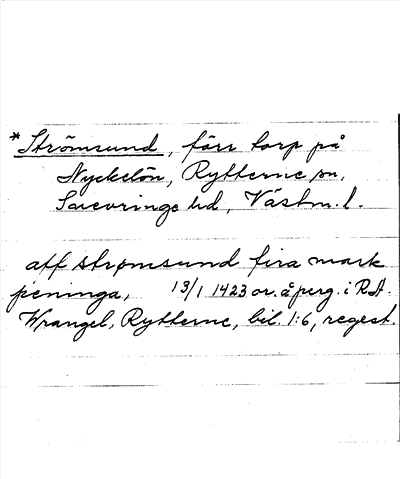 *Strömsund, förr torp på
Nyckelön, Rytterne sn,
Snevringe hd, Västm. l.
aff strømsund fira mark
peninga, 13/1 1423 or. å perg. i RA.
Wrangel, Rytterne, bil. 1:6, regest.